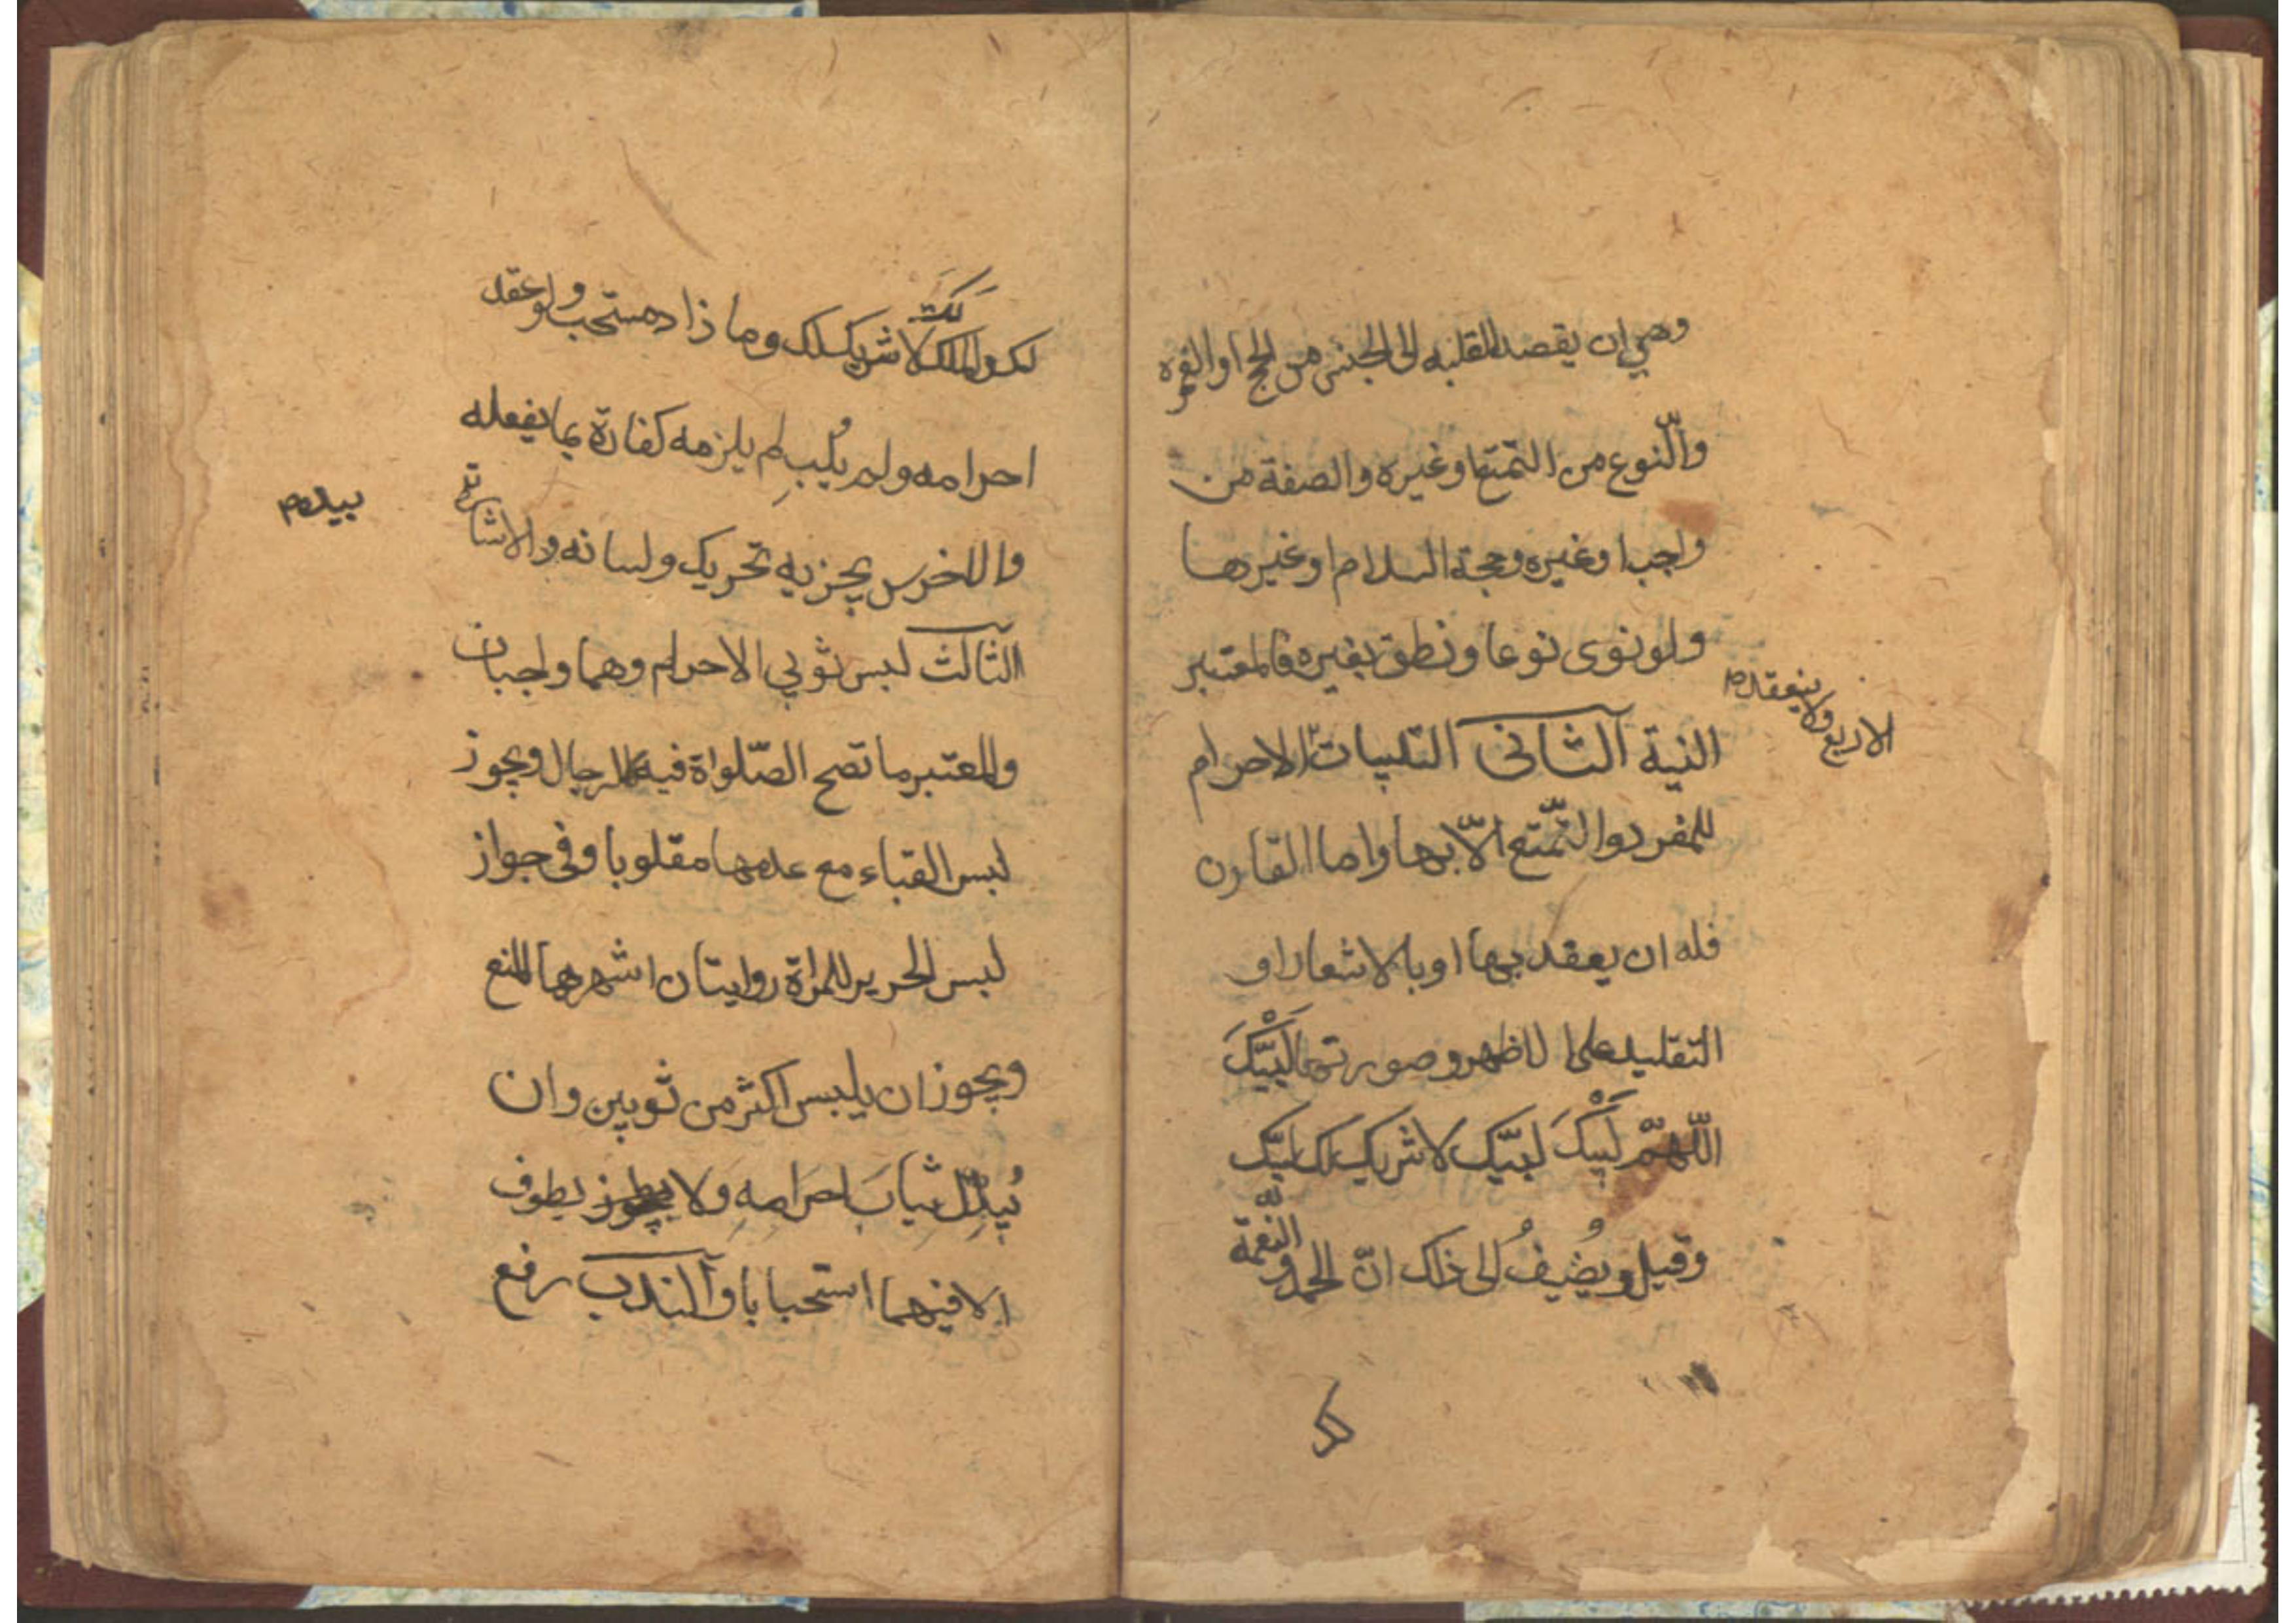 وهي ان يقصد بقلبه الى الجنس من الحج او العمرة
والنّوع من التمتع او غيره والصفة من
واجب او غيره وحجة السلام او غيرها
ولو نوى نوعا و نطق بغيره فالمعتبر
النية الثانى التلبيات الاحرام
الاربع ولا ينعقد
للمفرد والتمّتع الّا بها واما القارن
فله ان يعقد بها او بالاشعار او
التقليد على الاظهر وصورتها لَبَّيْكَ
اللّهمّ لَبَّيْكَ لبّيك لا شريك لك لبّيك
وقيل ويُضيفُ الى ذلك انّ الحمد والنّعمة
لك
لك والملك لك لا شريك لك وما ذاد مستحب ولو عقد
احرامه ولم يُلَبِ لم يلزمه كفارة بما يفعله
والاخرس يجزيه تحريك ولسانه والاشارة
بيده
الثالث لبس ثوبي الاحرام وهما واجبان
والمعتبر ما تصح الصّلواة فيه للرجال ويجوز
لبس القباء مع عدمها مقلوبا وفى جواز
لبس الحرير للمراة روايتان اشهرهما المنع
ويجوز ان يلبس اكثر من ثوبين وان
يُبدّل ثيابَ احرامهِ ولا يطوف
الا فيهما استحبابا والندب رفع